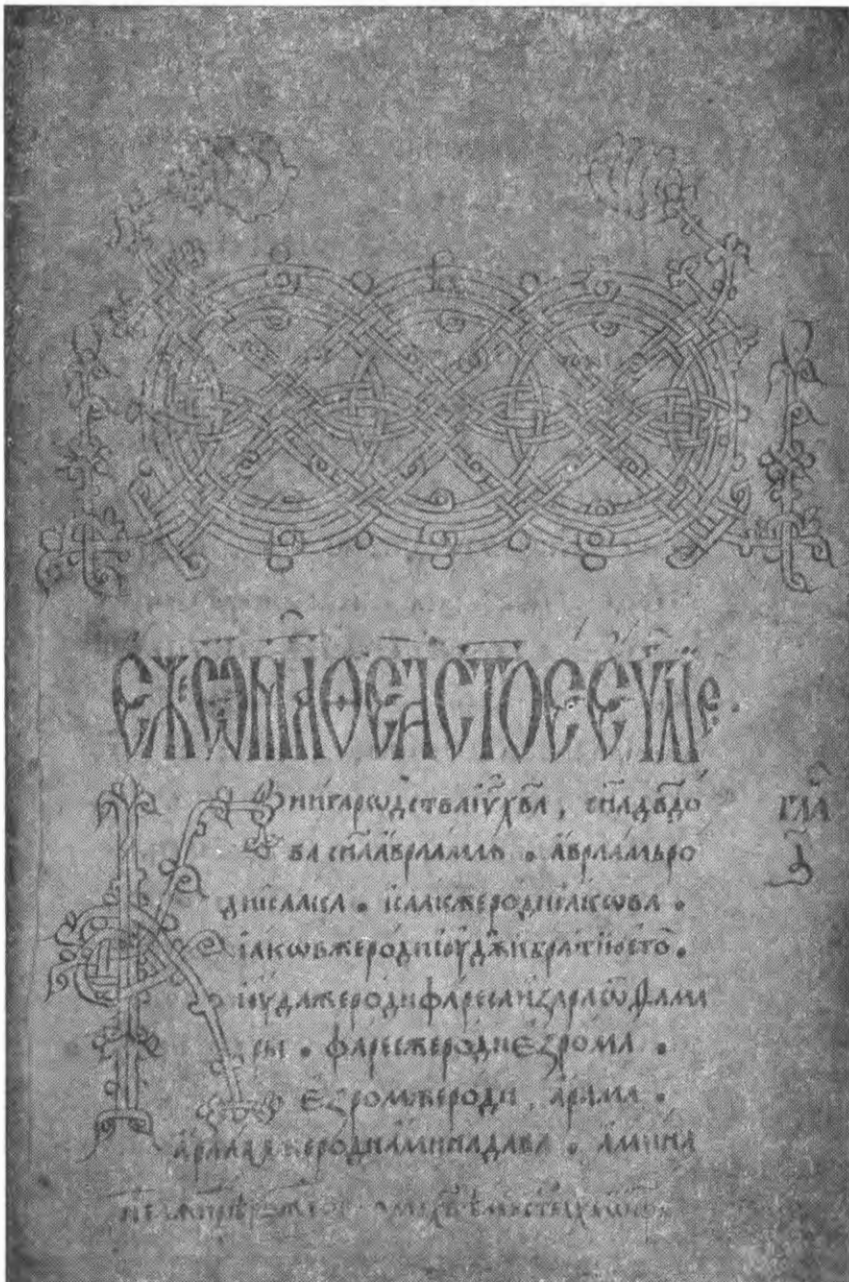 ЕЖЕ Ѿ МАѲЕА СТОЕ ЕѴЛІЕ ·
КНИГА РѠДСТВА ІУ ХВА , СНА ДВДО
ВА СНА АВРААМЛѦ · АВРААМЬ РО
ДИ ІСААКА · ІСААК ЖЕ РОДИ ІАКѠВА ·
ІАКѠВ ЖЕ РОДИ ІОУДѪ И БРАТІЮ ЕГО ·
ІОУДА ЖЕ РОДИ ФАРЕСА И ЗАРА Ѿ ѲАМА
РЫ · ФАРЕС ЖЕ РОДИ ЕЗРОМА ·
ЕЗРОМ ЖЕ РОДИ , АРАМА ·
АРАМ ЖЕ РОДИ АМИНАДАВА · АМИНА
ГЛА
А